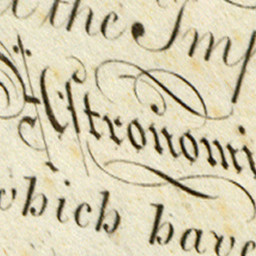 the Imſ
Aſtronomi
which have